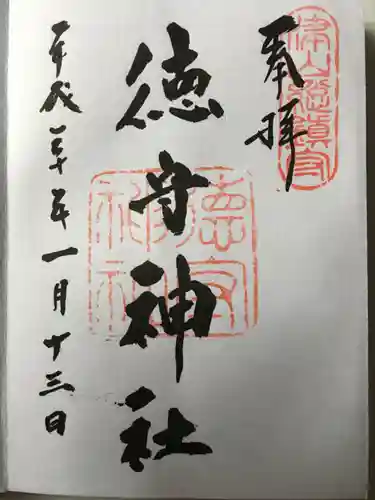 奉拝
津山總鎮守
徳守神社
平成三十年一月十三日